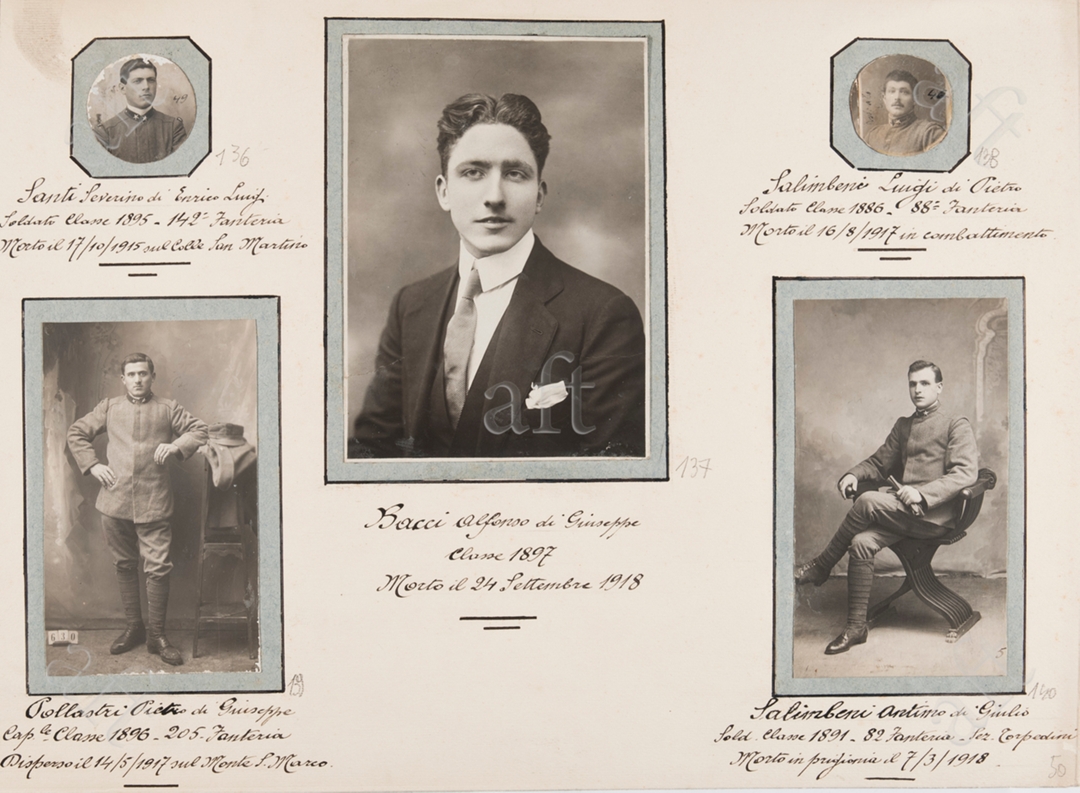 136
Santi Severino di Enrico Luigi
Soldato Classe 1895 - 142ª Fanteria
Morto il 17/10/1915 sul Colle San Martino
aft
137
Bacci Alfonso di Giuseppe
Classe 1897
Morto il 24 Settembre 1918
138
Salimbeni Luigi di Pietro
Soldato Classe 1886 - 88ª Fanteria
Morto il 16/8/1917 in combattimento
630
139
Pollastri Pietro di Giuseppe
Cap.le Classe 1896 - 205 Fanteria
Disperso il 14/5/1917 sul Monte S. Marco.
5
140
Salimbeni Antimo di Giulio
Sold. Classe 1891 - 82 Fanteria - Sez. Torpedini
Morto in prigionia il 7/3/1918
50